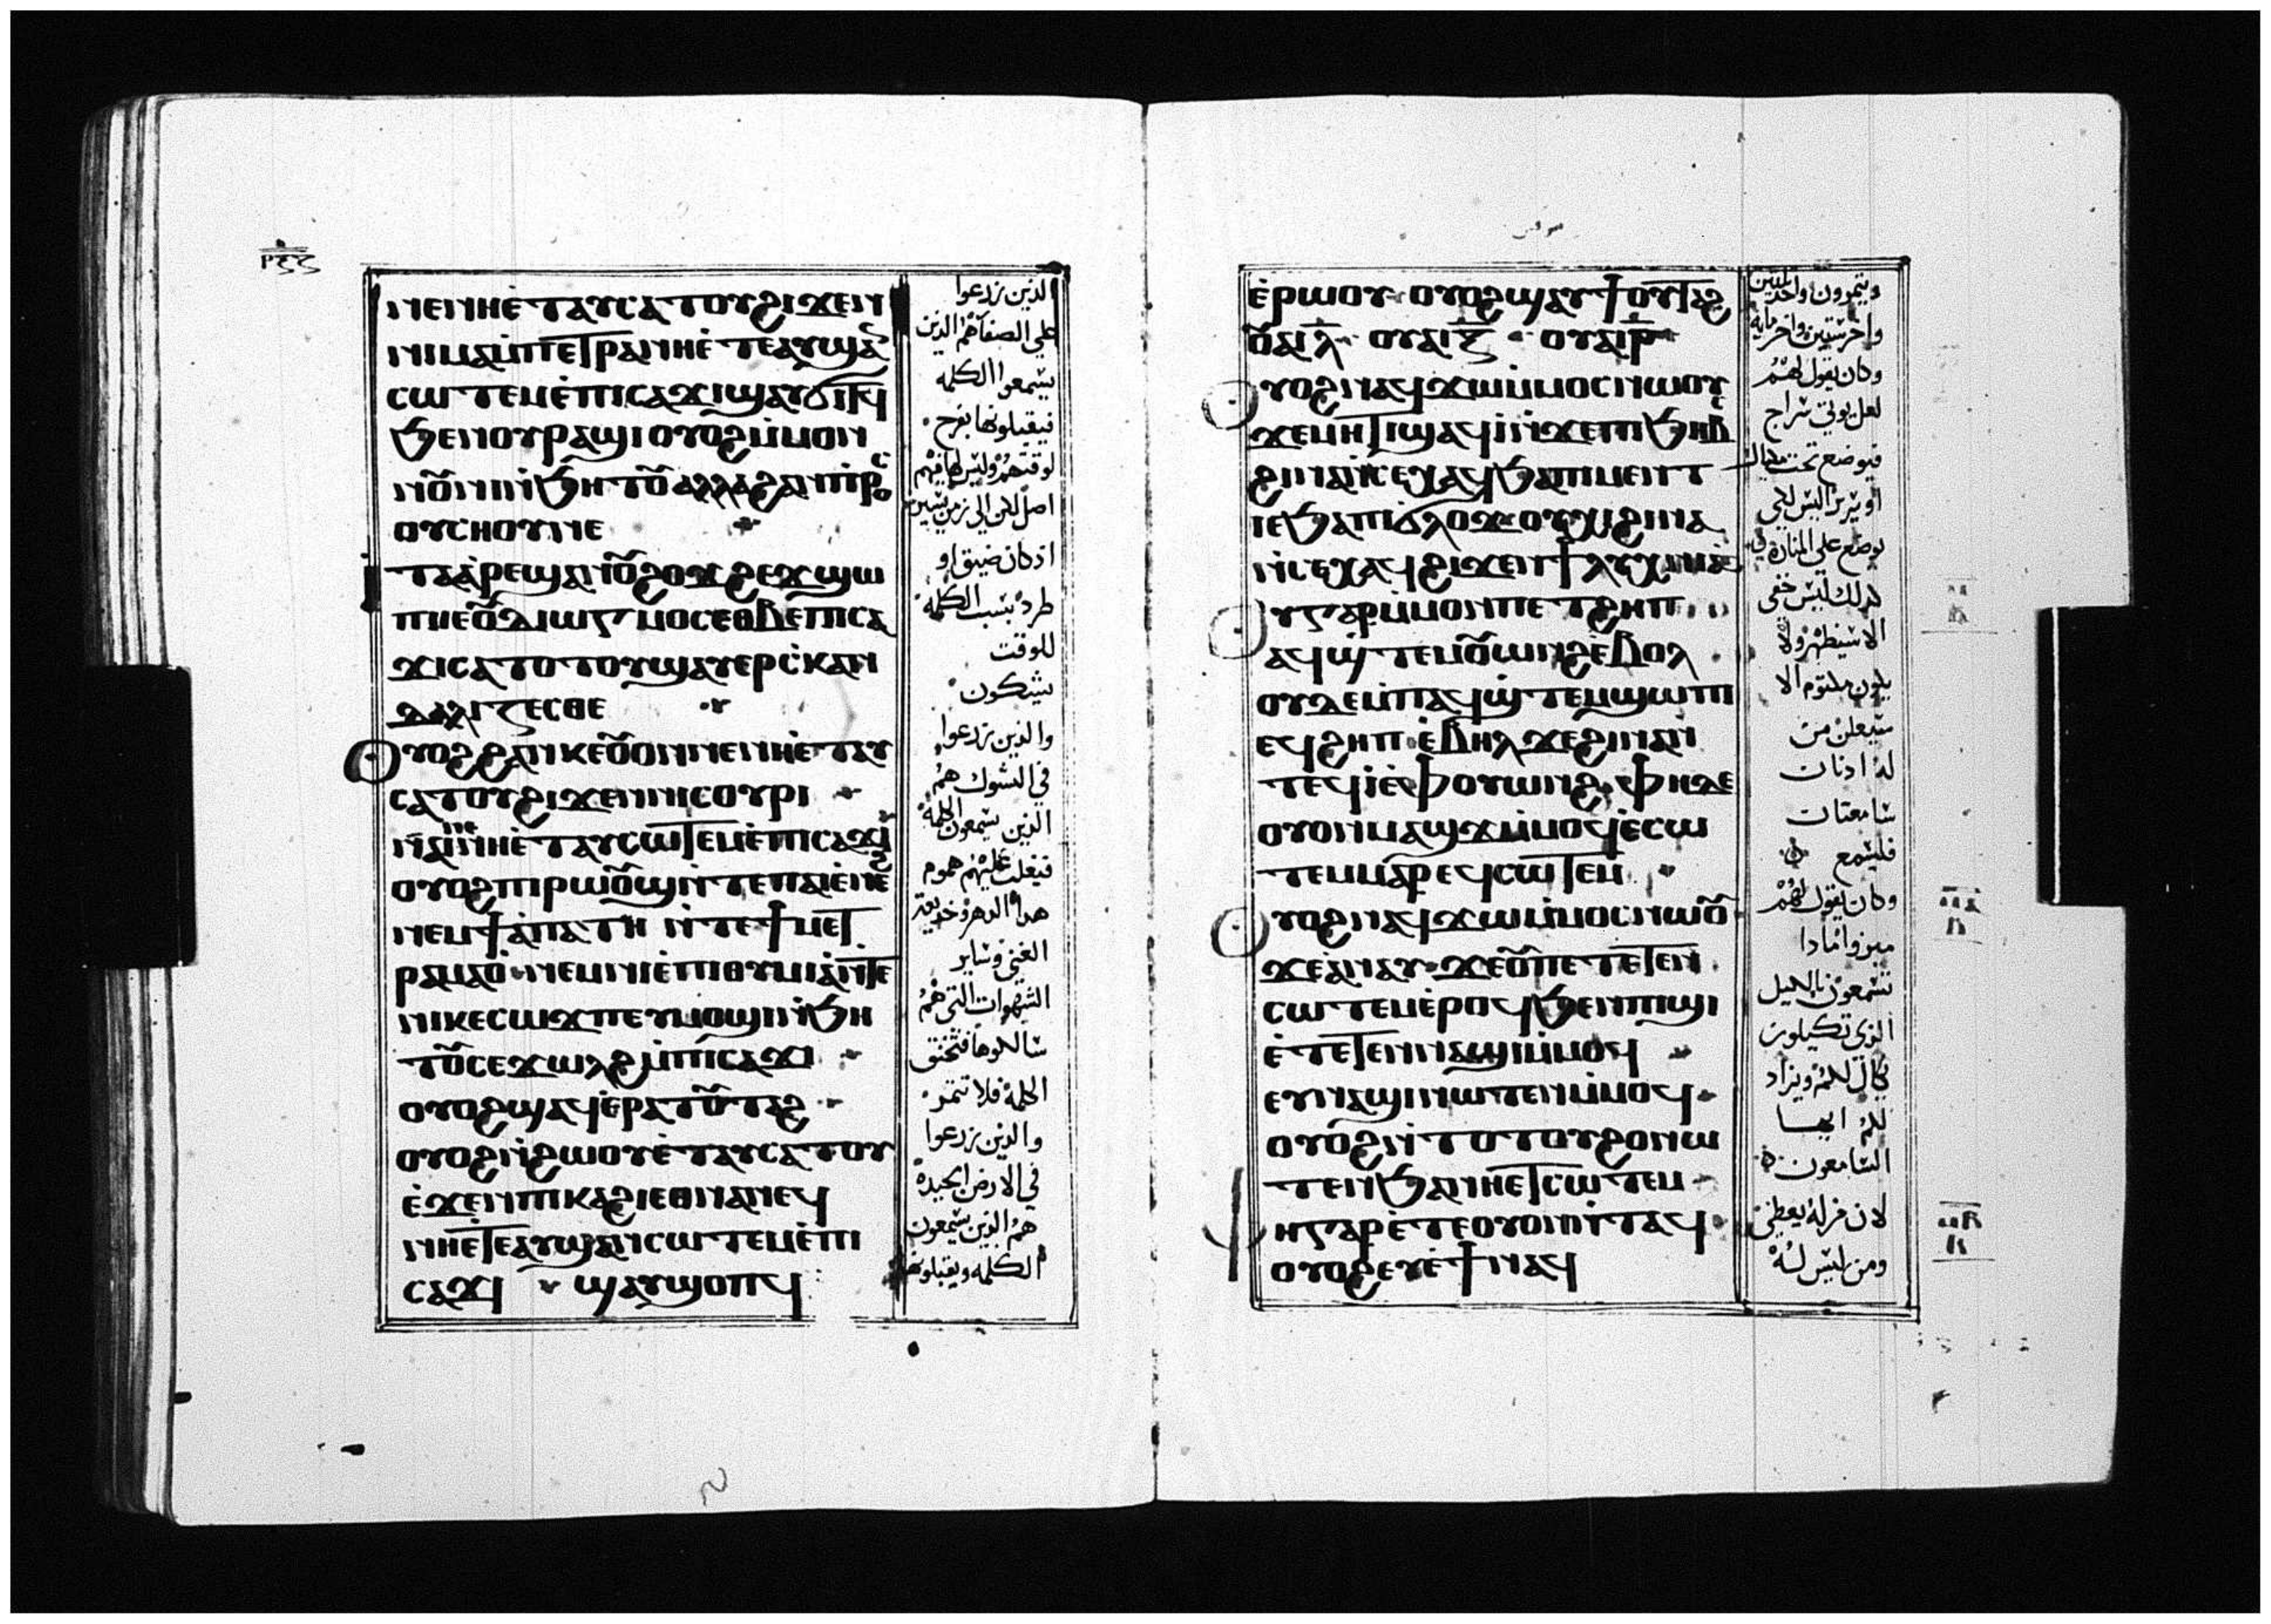 ⲛⲉⲛⲏⲉ̀ⲧⲁⲩⲥⲁⲧⲟⲩϩⲓϫⲉⲛ
ⲛⲓⲙⲁⲙ̀ⲡⲉⲧⲣⲁⲛⲏⲉ̀ⲧⲉⲁⲩϣⲁ
ⲥⲱⲧⲉⲙⲉ̀ⲡⲓⲥⲁϫⲓϣⲁⲩϭⲓⲧϥ
ϧⲉⲛⲟⲩⲣⲁϣⲓⲟⲩⲟϩⲙ̀ⲙⲟⲛ
ⲟⲩⲥⲏⲟⲩⲛⲉ
ⲡⲛⲉⲟⲩⲇⲓⲱⲅⲙⲟⲥⲉⲑⲃⲉⲡⲓⲥⲁ
ϫⲓⲥⲁⲧⲟⲧⲟⲩϣⲁⲩⲉⲣⲥ̀ⲕⲁⲛ
ⲇⲁⲗⲓⲍⲉⲥⲑⲉ
ⲩⲟϩϩⲁⲛⲕⲉⲟⲩⲟⲛⲛⲉⲛⲏⲉ̀ⲧⲁⲩ
ⲥⲁⲧⲟⲩϩⲓϫⲉⲛⲛⲓⲥⲟⲩⲣⲓ
ⲟⲩⲟϩⲡⲓⲣⲱⲟⲩϣⲛ̀ⲧⲉⲡⲁⲓⲉ̀ⲛⲉϩ
ⲛⲉⲙϯⲁ̀ⲡⲁⲧⲏ ⲛ̀ⲧⲉϯⲙⲉⲧ
ⲣⲁⲙⲁⲟ̀ ⲛⲉⲙⲛⲓⲉ̀ⲡⲓⲑⲩⲙⲓⲁ̀ⲛ̀ⲧⲉ
ⲛⲓⲕⲉⲥⲱϫⲡⲉⲩⲙⲟϣⲓⲛ̀ϧⲏ
ⲧⲟⲩⲥⲉϫⲱⲗϩⲙ̀ⲡⲓⲥⲁϫⲓ
ⲟⲩⲟϩϣⲁϥⲉⲣⲁⲧⲟⲩⲧⲁϩ
ⲟⲩⲟϩⲛ̀ϩⲱⲟⲩⲉ̀ⲧⲁⲩⲥⲁⲧⲟⲩ
ⲉ̀ϫⲉⲛⲡⲓⲕⲁϩⲓⲉⲑⲛⲁⲛⲉϥ
ⲛⲏⲉ̀ⲧⲉⲁⲩϣⲁⲛⲥⲱⲧⲉⲙⲉ̀ⲡⲓ
ⲥⲁϫⲓ ϣⲁⲩϣⲟⲡϥ
الذين زرعوا
علي الصفا هم الذين
يسمعوا الكلمه
فيقبلونها بفرح
اذ كان ضيق او
طرد بسبب الكلمه
للوقت
يشكون
والذين زرعوا
في الشوك هم
الذين يسمعون الكلمه
فيغلب عليهم هموم
الشهوات التي هم
الكلمه فلا تثمر
والذين زرعوا
في الارض الجيده
هم الذين يسمعون
الكلمه ويقبلونها
ⲉ̀ⲣⲱⲟⲩ ⲟⲩⲟϩϣⲁⲩϯⲟⲩⲧⲁϩ
ⲟⲩⲁⲓⲗ̅ ⲟⲩⲁⲓⲝ̅ ⲟⲩⲁⲓⲣ̅
ⲩⲟϩⲛⲁϥϫⲱⲙ̀ⲙⲟⲥⲛⲱⲟⲩ
ϫⲉⲙⲏⲧⲓϣⲁϥⲓ̀ⲛ̀ϫⲉⲡⲓϧⲏⲃⲥ
ϩⲓⲛⲁⲛ̀ⲥⲉⲭⲁϥϧⲁⲡⲓⲙⲉⲛⲧ
ⲓⲉϧⲁⲡⲓϭⲗⲟϫ ⲟⲩⲭⲓϩⲓⲛⲁ
ⲛ̀ⲥⲉⲭⲁϥϩⲓϫⲉⲛϯⲗⲩⲭⲛⲓⲁ̀
ⲩⲅⲁⲣⲙ̀ⲙⲟⲛⲡⲉⲧϩⲏⲡ
ⲁϥϣ̀ⲧⲉⲙⲟⲩⲱⲛϩⲉ̀ⲃⲟⲗ
ⲟⲩⲇⲉⲙ̀ⲡⲁϥϣ̀ⲧⲉⲙϣⲱⲡⲓ
ⲉϥϩⲏⲡ ⲉ̀ⲃⲏⲗϫⲉϩⲓⲛⲁⲛ̀
ⲧⲉϥⲓ̀ⲉ̀ⲫⲟⲩⲱⲛϩ ⲫⲏⲇⲉ
ⲟⲩⲟⲛⲙⲁϣϫⲙ̀ⲙⲟϥⲉ̀ⲥⲱ
ⲧⲉⲙⲙⲁⲣⲉϥⲥⲱⲧⲉⲙ
ⲩⲟϩⲛⲁϥϫⲱⲙ̀ⲙⲟⲥⲛⲱⲟⲩ
ϫⲉⲁ̀ⲛⲁⲩ ϫⲉⲟⲩⲡⲉⲧⲉⲧⲉⲛ
ⲥⲱⲧⲉⲙⲉ̀ⲣⲟϥϧⲉⲛⲡⲓϣⲓ
ⲉ̀ⲧⲉⲧⲉⲛⲛⲁϣⲓⲙ̀ⲙⲟϥ
ⲉⲩⲛⲁϣⲓⲛⲱⲧⲉⲛⲙ̀ⲙⲟϥ
ⲟⲩⲟϩⲛ̀ⲧⲟⲧⲟⲩϩⲟⲛⲱ
ⲧⲉⲛϧⲁⲛⲏⲉⲧⲥⲱⲧⲉⲙ
ⲏⲅⲁⲣⲉ̀ⲧⲉⲟⲩⲟⲛⲛ̀ⲧⲁϥ
ⲟⲩⲟϩⲉⲩⲉ̀ϯⲛⲁϥ
واخر ستين واخر مايه
وكان يقول لهم
لعل يوتي سراج
فيوضع تحت مكيال
يوضع علي المناره
كذلك ليس خفي
الا سيظهر ولا
يكون مكتوم الا
سيعلن من
له اذنان
سامعتان
فليسمع
وكان يقول لهم
ميزوا ماذا
تسمعون بالكيل
الذي تكيلون
يكال لكم ويزاد
لكم ايها
السامعون
لان من له يعطي
ومن ليس له